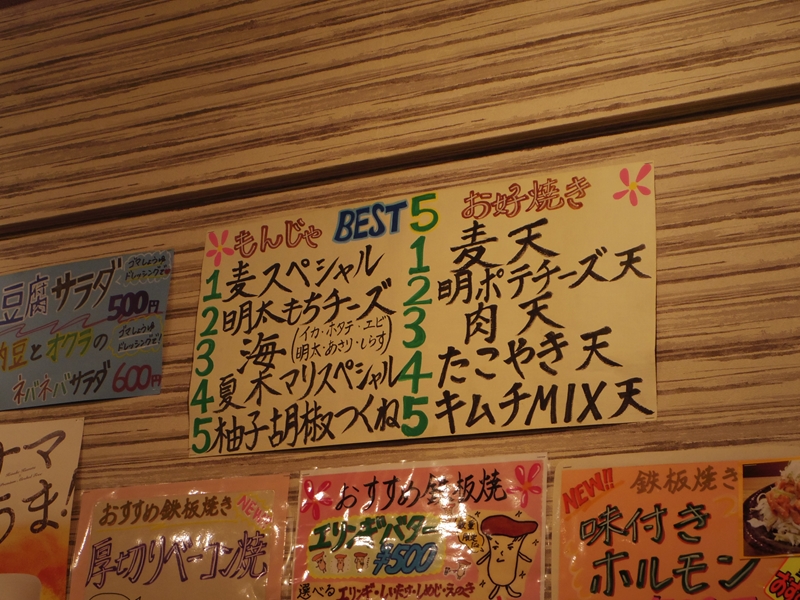 もんじゃ BEST5 お好焼き
1 麦スペシャル
2 明太もちチーズ
3 海(イカ・ホタテ・エビ
明太・あさり・しらす)
4 夏木マリスペシャル
5 柚子胡椒つくね
1 麦天
2 明ポテチーズ天
3 肉天
4 たこやき天
5 キムチMIX天
豆腐サラダ
ゴマしょうゆ
ドレッシングで
500円
納豆とオクラの
ネバネバサラダ
ゴマしょうゆ
ドレッシングで!
600円
ナマ
うま!
おすすめ鉄板焼き
NEW
厚切りベーコン焼
おすすめ鉄板焼
エリンギバター
¥500
選べる エリンギ・しいたけ・しめじ・えのき
NEW!!
鉄板焼き
味付き
ホルモン